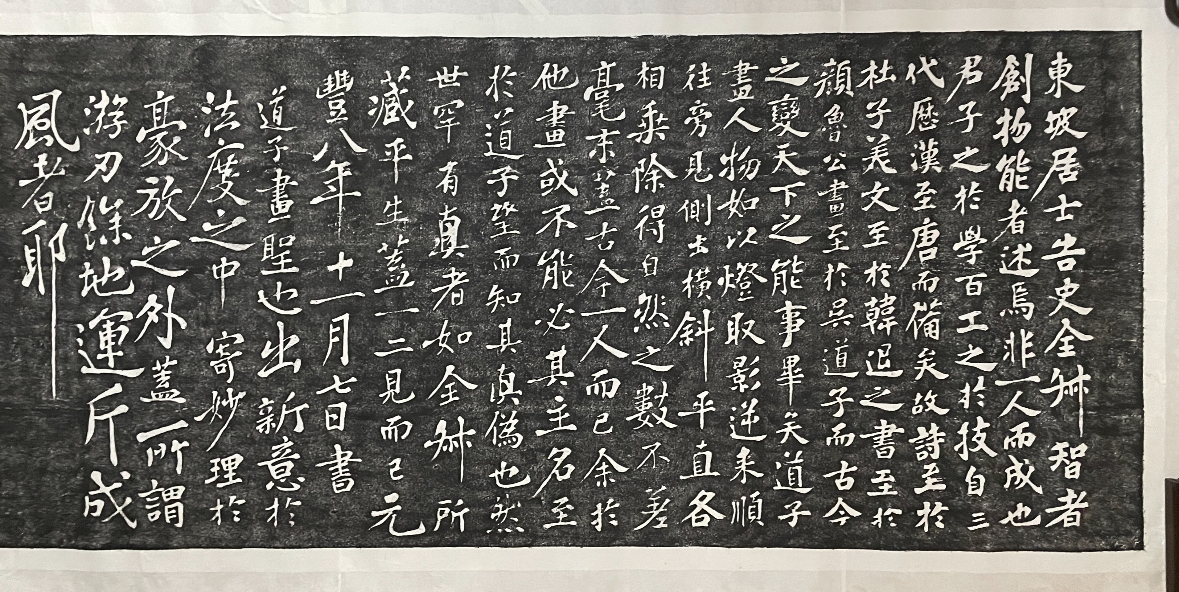 東坡居士告史全叔智者
創物能者述焉非一人而成也
君子之於學百工之於技自三
代歷漢至唐而備矣故詩至於
杜子美文至於韓退之書至於
顏魯公畫至於吳道子而古今
之變天下之能事畢矣道子
畫人物如以燈取影逆來順
往旁見側出橫斜平直各
相乘除得自然之數不差
毫末蓋古今一人而已余於
他畫或不能必其主名至
於道子望而知其真偽也然
世罕有真者如全叔所
藏平生蓋一二見而已元
豐八年十一月七日書
道子畫聖也出新意於
法度之中寄妙理於
豪放之外蓋所謂
游刃餘地運斤成
風者耶